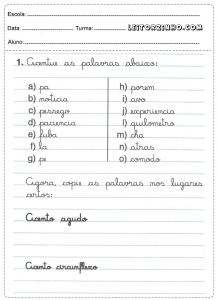 Escola:
Data: Turma: LEITORZINHO.COM
Aluno:
1. Acentue as palavras abaixo:
a) pa h) porem
b) noticia i) avo
c) pessego j) experiencia
d) paciencia l) quilometro
e) fuba m) cha
f) la n) atras
g) pe o) comodo
Agora, copie as palavras nos lugares
certos:
Acento agudo
Acento circunflexo